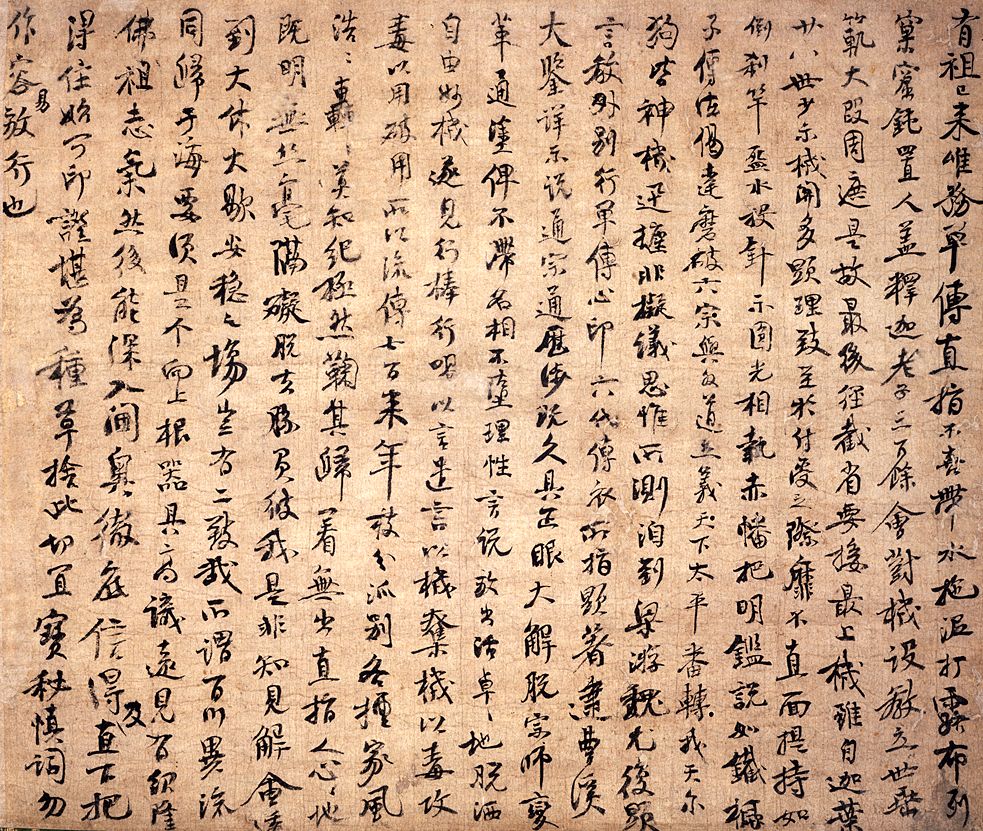 有祖已来唯務單傳直指不喜帶水拖泥打露布列
窠窟鈍置人蓋釋迦老子三百餘會對機設教立世垂
範大段周遮是故最後徑截省要接最上機雖自迦葉
廿八世少示機關多顯理致至於付受之際靡不直面提持如
倒刹竿盋水投針示圓光相執赤幡把明鑑説如鐵橛
子傳法偈達磨破六宗與外道立義天下太平番轉我天尔
狗皆神機迅捷非擬議思惟所測洎到梁游魏尤復顯
言教外別行單傳心印六代傳衣所指顯著逮曹溪
大鑒詳示説通宗通歷涉既久具正眼大解脱宗師變
革通塗俾不滯名相不墮理性言説放出活卓々地脱洒
自由妙機遂見行棒行喝以言遣言以機奪機以毒攻
毒以用破用所以流傳七百来年枝分派別各擅家風
浩々轟々莫知紀極然鞠其歸着無出直指人心々地
既明無絲毫隔礙脱去勝負彼我是非知見解會透
到大休大歇安穩之場豈有二致哉所謂百川異流
同歸于海要須是个向上根器具高識遠見有紹隆
佛祖志氣然後能深入閫奥徹底信得及直下把
得住始可印證堪為種草捨此切宜寶秘慎詞勿
作容易放行也